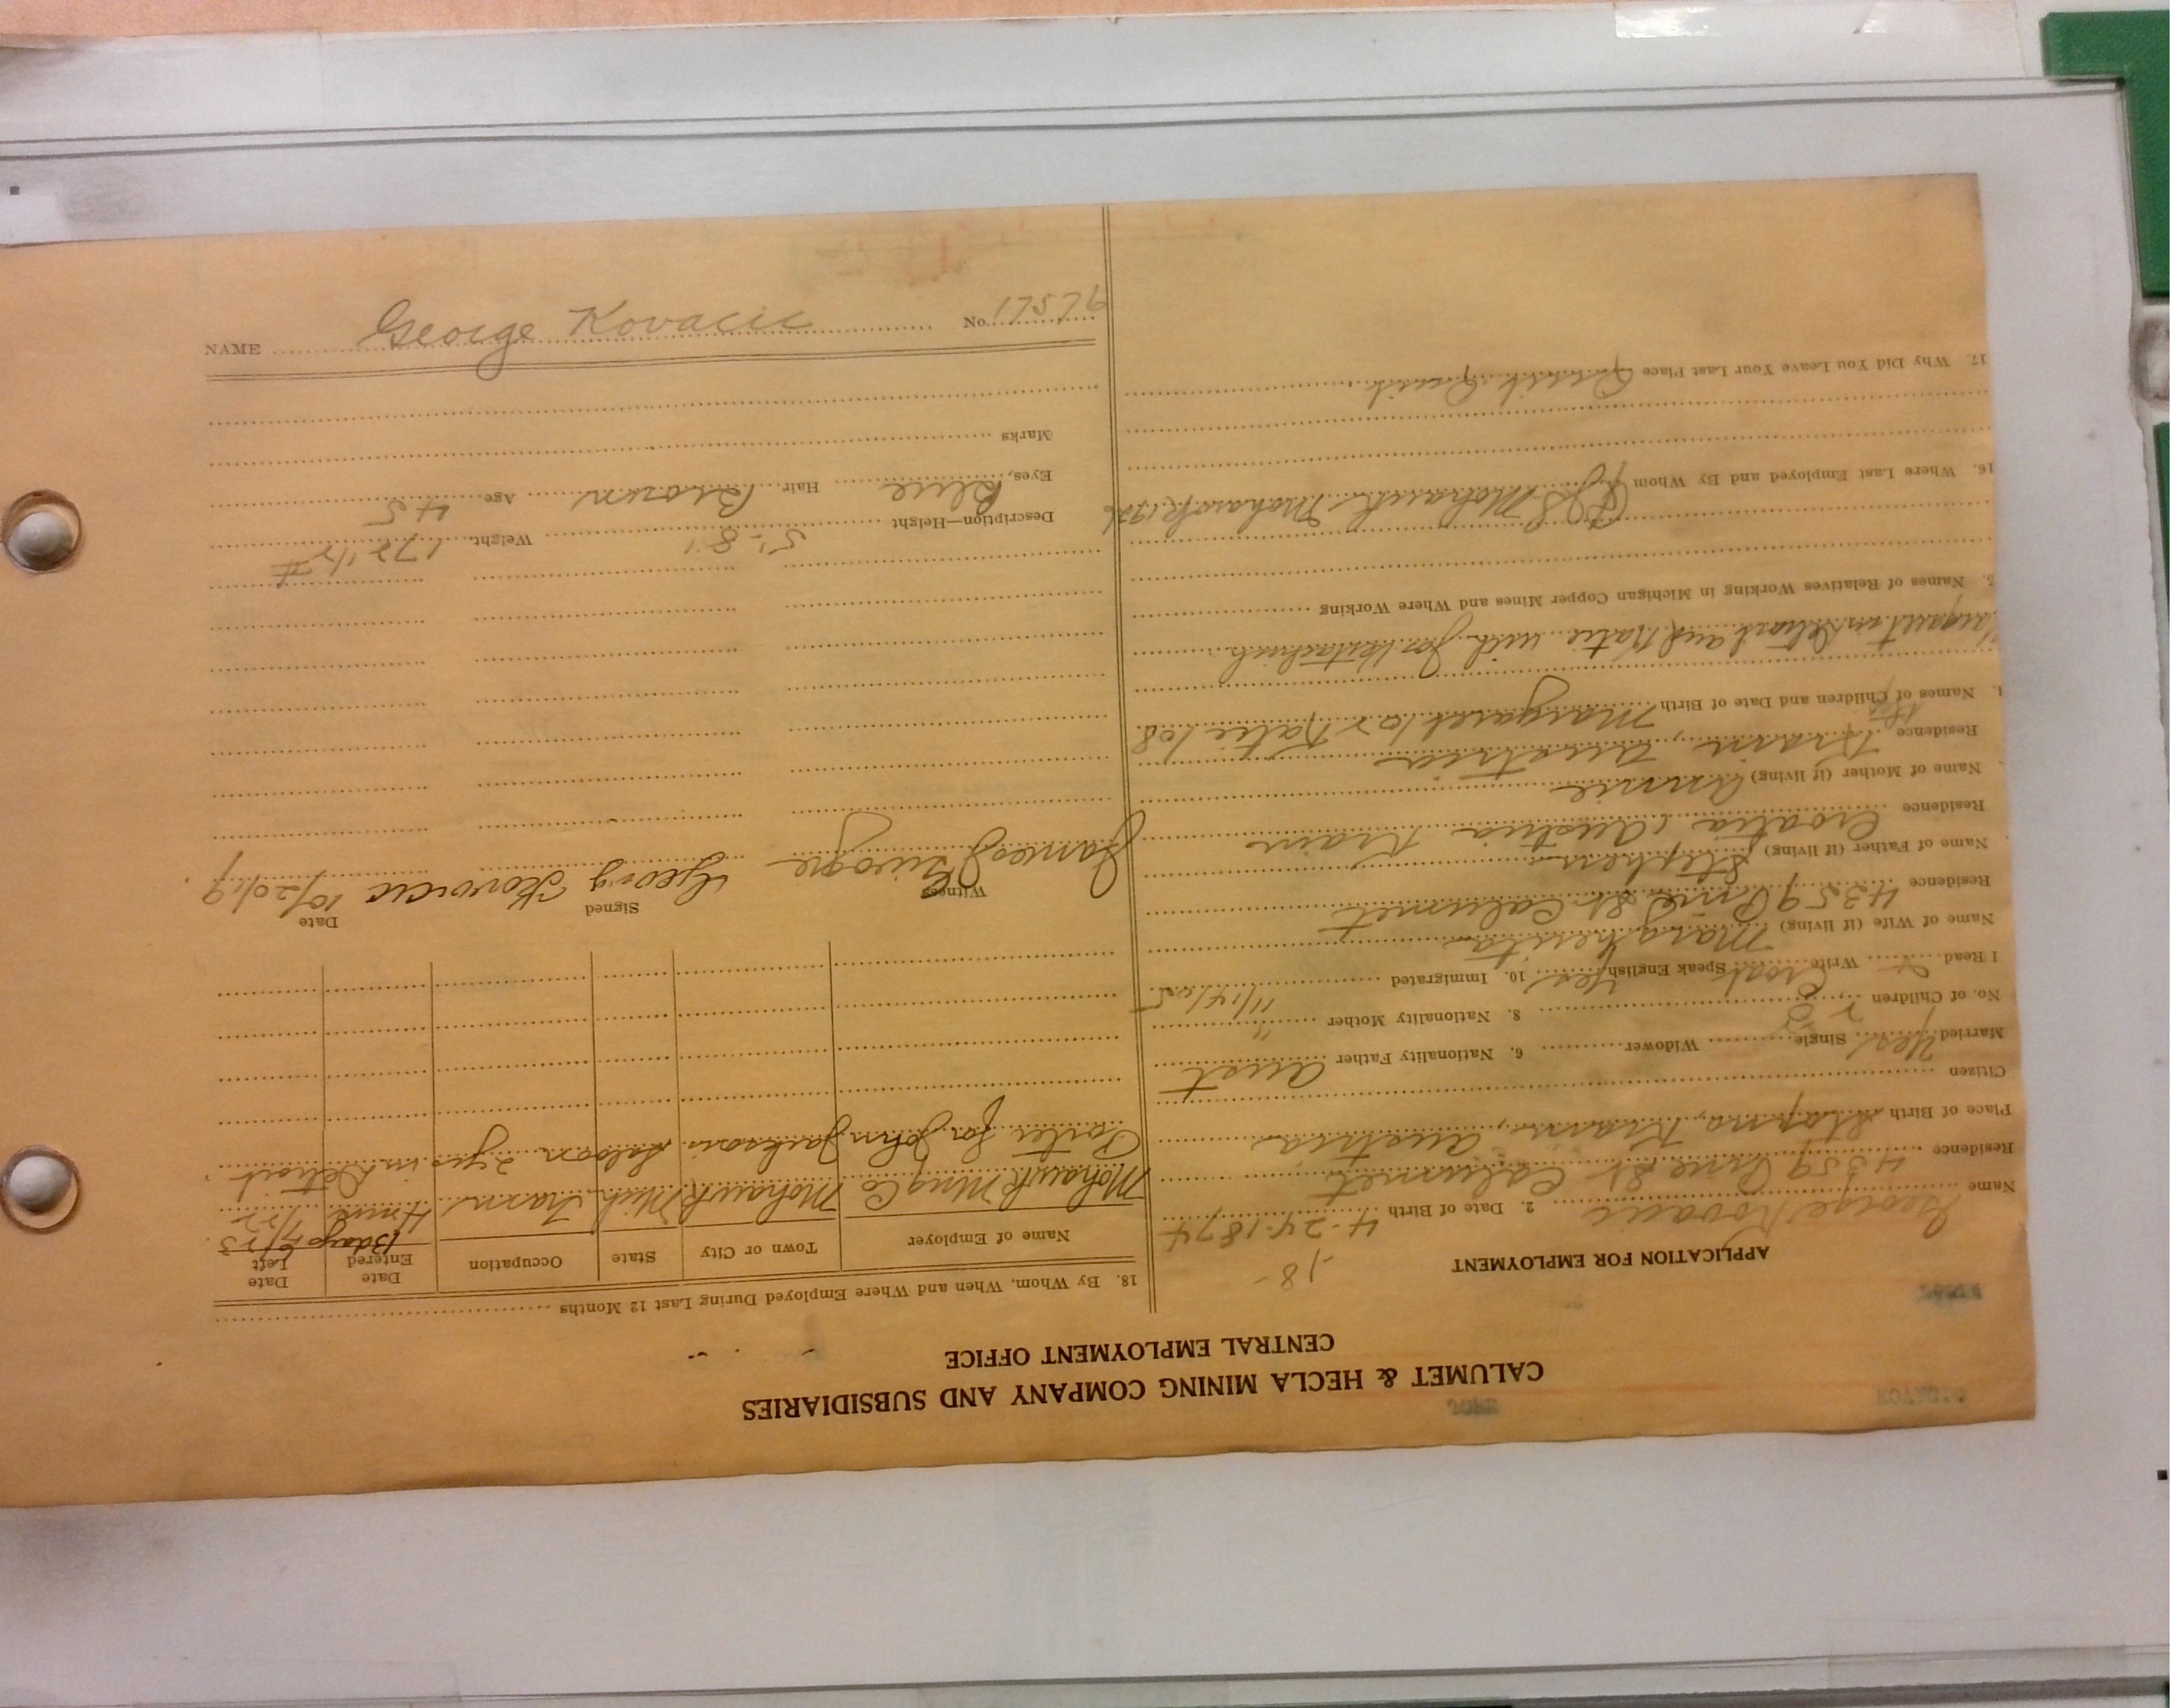 CALUMET & HECLA MINING COMPANY AND SUBSIDIARIES
CENTRAL EMPLOYMENT OFFICE
APPLICATION FOR EMPLOYMENT
-18-
Name George Kovacic 2. Date of Birth 4-24-1874
Residence 4359 Pine St Calumet
Place of Birth Stopno, Krain, Austria
Citizen
Married Yes Single Widower 6. Nationality Father Aust
No. of Children 2 8. Nationality Mother "
I Read Write Croat Speak English Yes 10. Immigrated 11/14/05
Name of Wife (if living) Margherita
Residence 4359 Pine St Calumet
Name of Father (if living) Stephen
Residence Croatia, Austria Krain
Name of Mother (if living) Annie
Residence Krain, Austria
Names of Children and Date of Birth Margaret 10 Katie 108
in Detroit and Katie with
Names of Relatives Working in Michigan Copper Mines and Where Working
16. Where Last Employed and By Whom Mohawk Mohawk
17. Why Did You Leave Your Last Place Quit
18. By Whom, When and Where Employed During Last 12 Months
Name of Employer Town or City State Occupation Date Entered Date Left
Mohawk Mng Co Mohawk Mich Tram 13 days 6/23
4 mos 7/22
Porter for John Jackson Saloon 2 yrs in Detroit.
Witness Signed Date
James George Kovacic 10/20/19.
Description—Height 5'-8" Weight 172 1/2 #
Eyes, Blue Hair Brown Age 45
Marks
NAME George Kovacic No. 17576